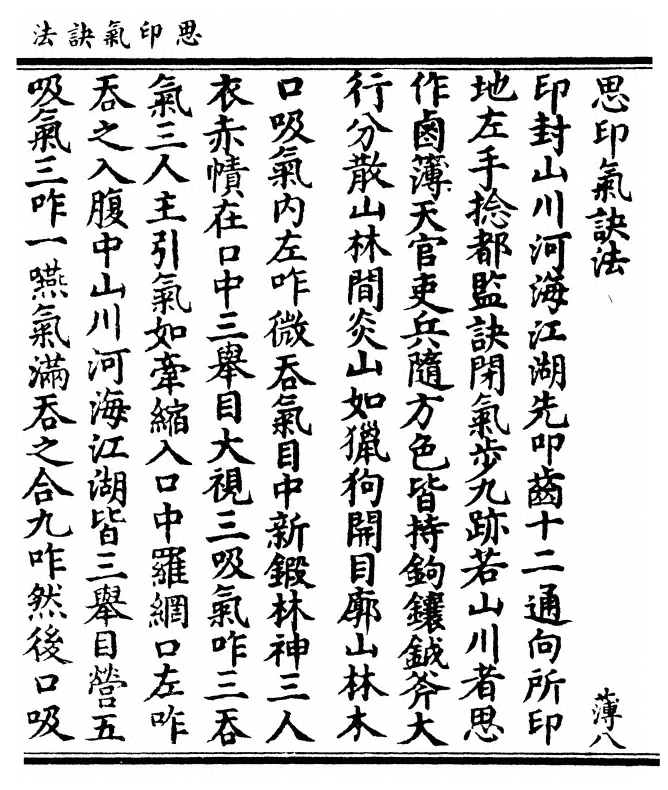 思印氣訣法
思印氣訣法
薄八
印封山川河海江湖先叩齒十二通向所印
地左手捻都監訣閉氣步九跡若山川者思
作鹵簿天官吏兵隨方色皆持鉤鑲鉞斧大
行分散山林間炎山如獵狗開目廓山林木
口吸氣內左咋微吞氣目中新鍛林神三人
衣赤幘在口中三舉目大視三吸氣咋三吞
氣三人主引氣如牽縮入口中羅網口左咋
吞之入腹中山川河海江湖皆三舉目營五
吸氣三咋一嚥氣滿吞之合九咋然後口吸